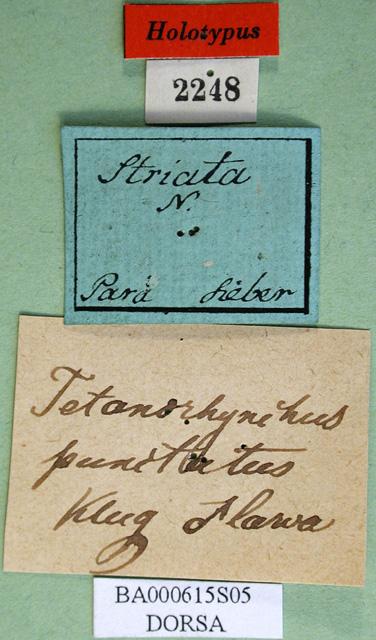 Holotypus
2248
Striata
N.
Pará Sieber
Tetanorhynchus
punctatus
Klug ♂ larva
BA000615S05
DORSA